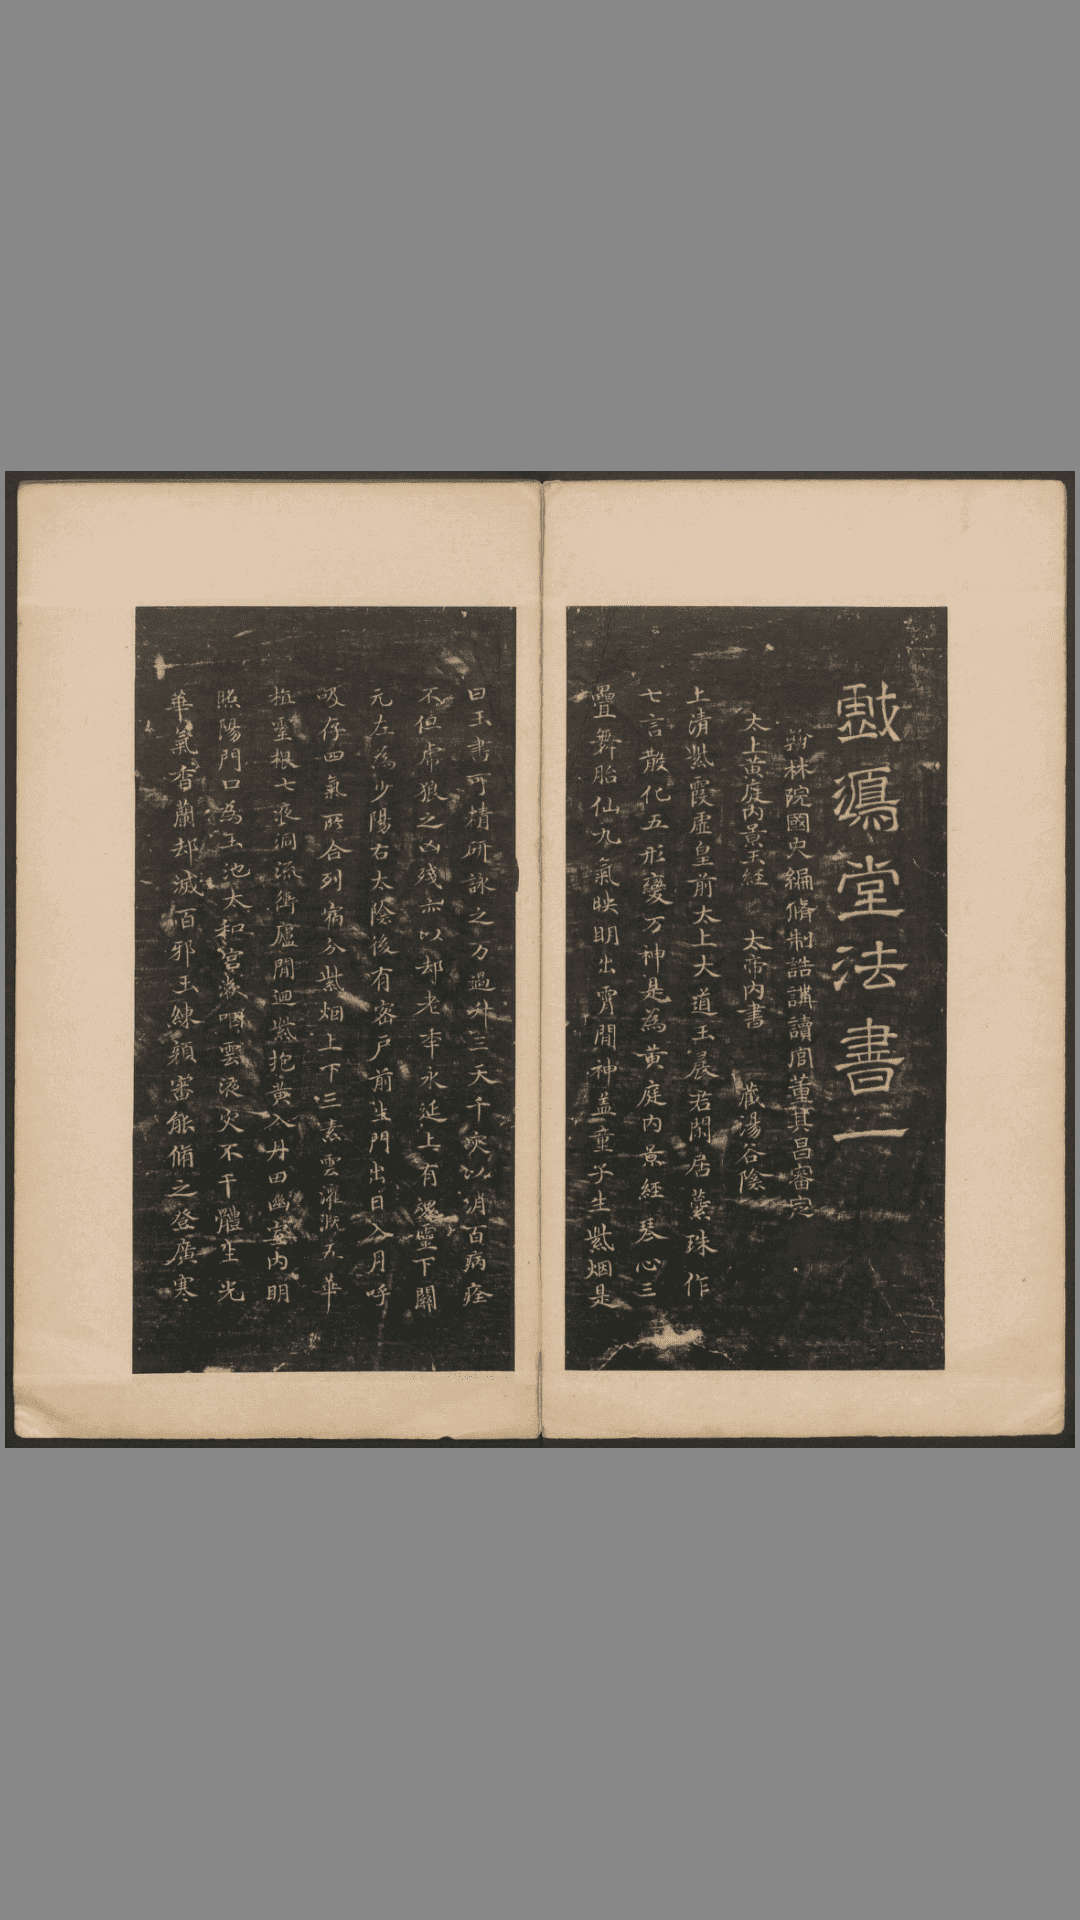 戲鴻堂法書一
翰林院國史編脩制誥講讀官董其昌審定
太上黃庭內景玉經　太帝內書　藏湯谷陰
上清紫霞虛皇前太上大道玉晨君閑居蘂珠作
七言散化五形變万神是為黃庭內景經琴心三
疊舞胎仙九氣映明出霄間神盖童子生紫烟是
曰玉書可精研詠之万過升三天千灾以消百病痊
不但虎狼之凶殘亦以却老年永延上有魂靈下關
元左為少陽右太陰後有密戶前生門出日入月呼
吸存四氣所合列宿分紫烟上下三素雲灌溉五華
植靈根七液洞流衝廬間迴紫抱黃入丹田幽室內明
照陽門口為玉池太和宮漱咽靈液灾不干體生光
華氣香蘭却滅百邪玉練顏審能脩之登廣寒